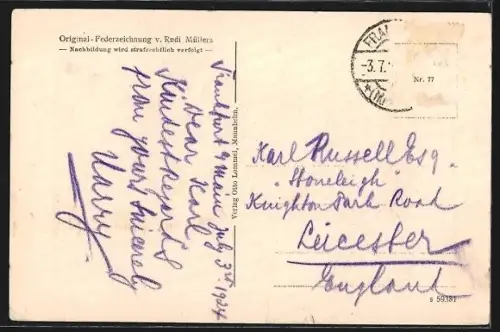 Original-Federzeichnung v. Rudi Müllers
— Nachbildung wird strafrechtlich verfolgt —
Frankfurt a/Main July 3rd 1924
Dear Karl
Kindest Regards
from yours Sincerely
Harry
Verlag Otto Lommel, Mannheim.
FRA
-3.7.
Nr. 77
Karl Russell Esq
"Stoneleigh"
Knighton Park Road
Leicester
England
s 59381